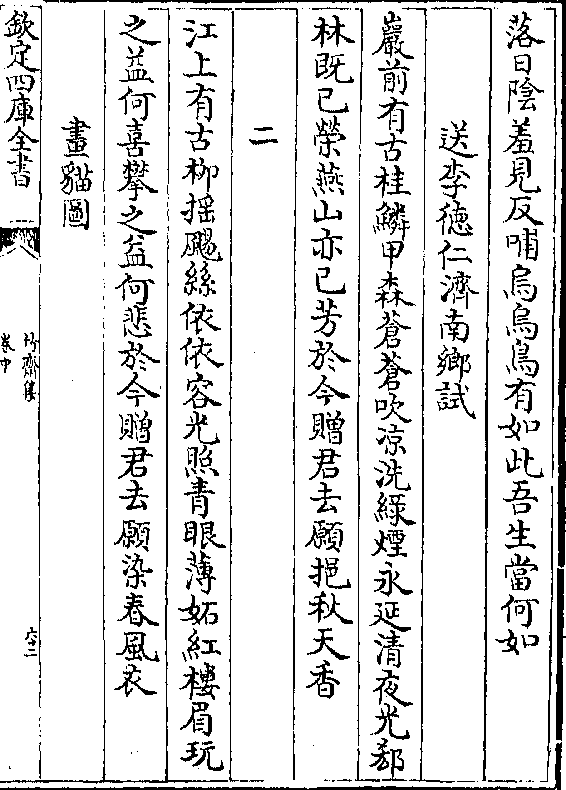 落日陰羞見反哺烏烏鳥有如此吾生當何如
送李德仁濟南鄉試
巖前有古桂鱗甲森蒼蒼吹凉洗綠煙永延清夜光郄
林既已榮燕山亦已芳於今贈君去願挹秋天香
二
江上有古柳揺颺絲依依容光照青眼薄妬紅樓眉玩
之益何喜攀之益何悲於今贈君去願染春風衣
畫貓圖
欽定四庫全書
竹齋集
卷中
六十二